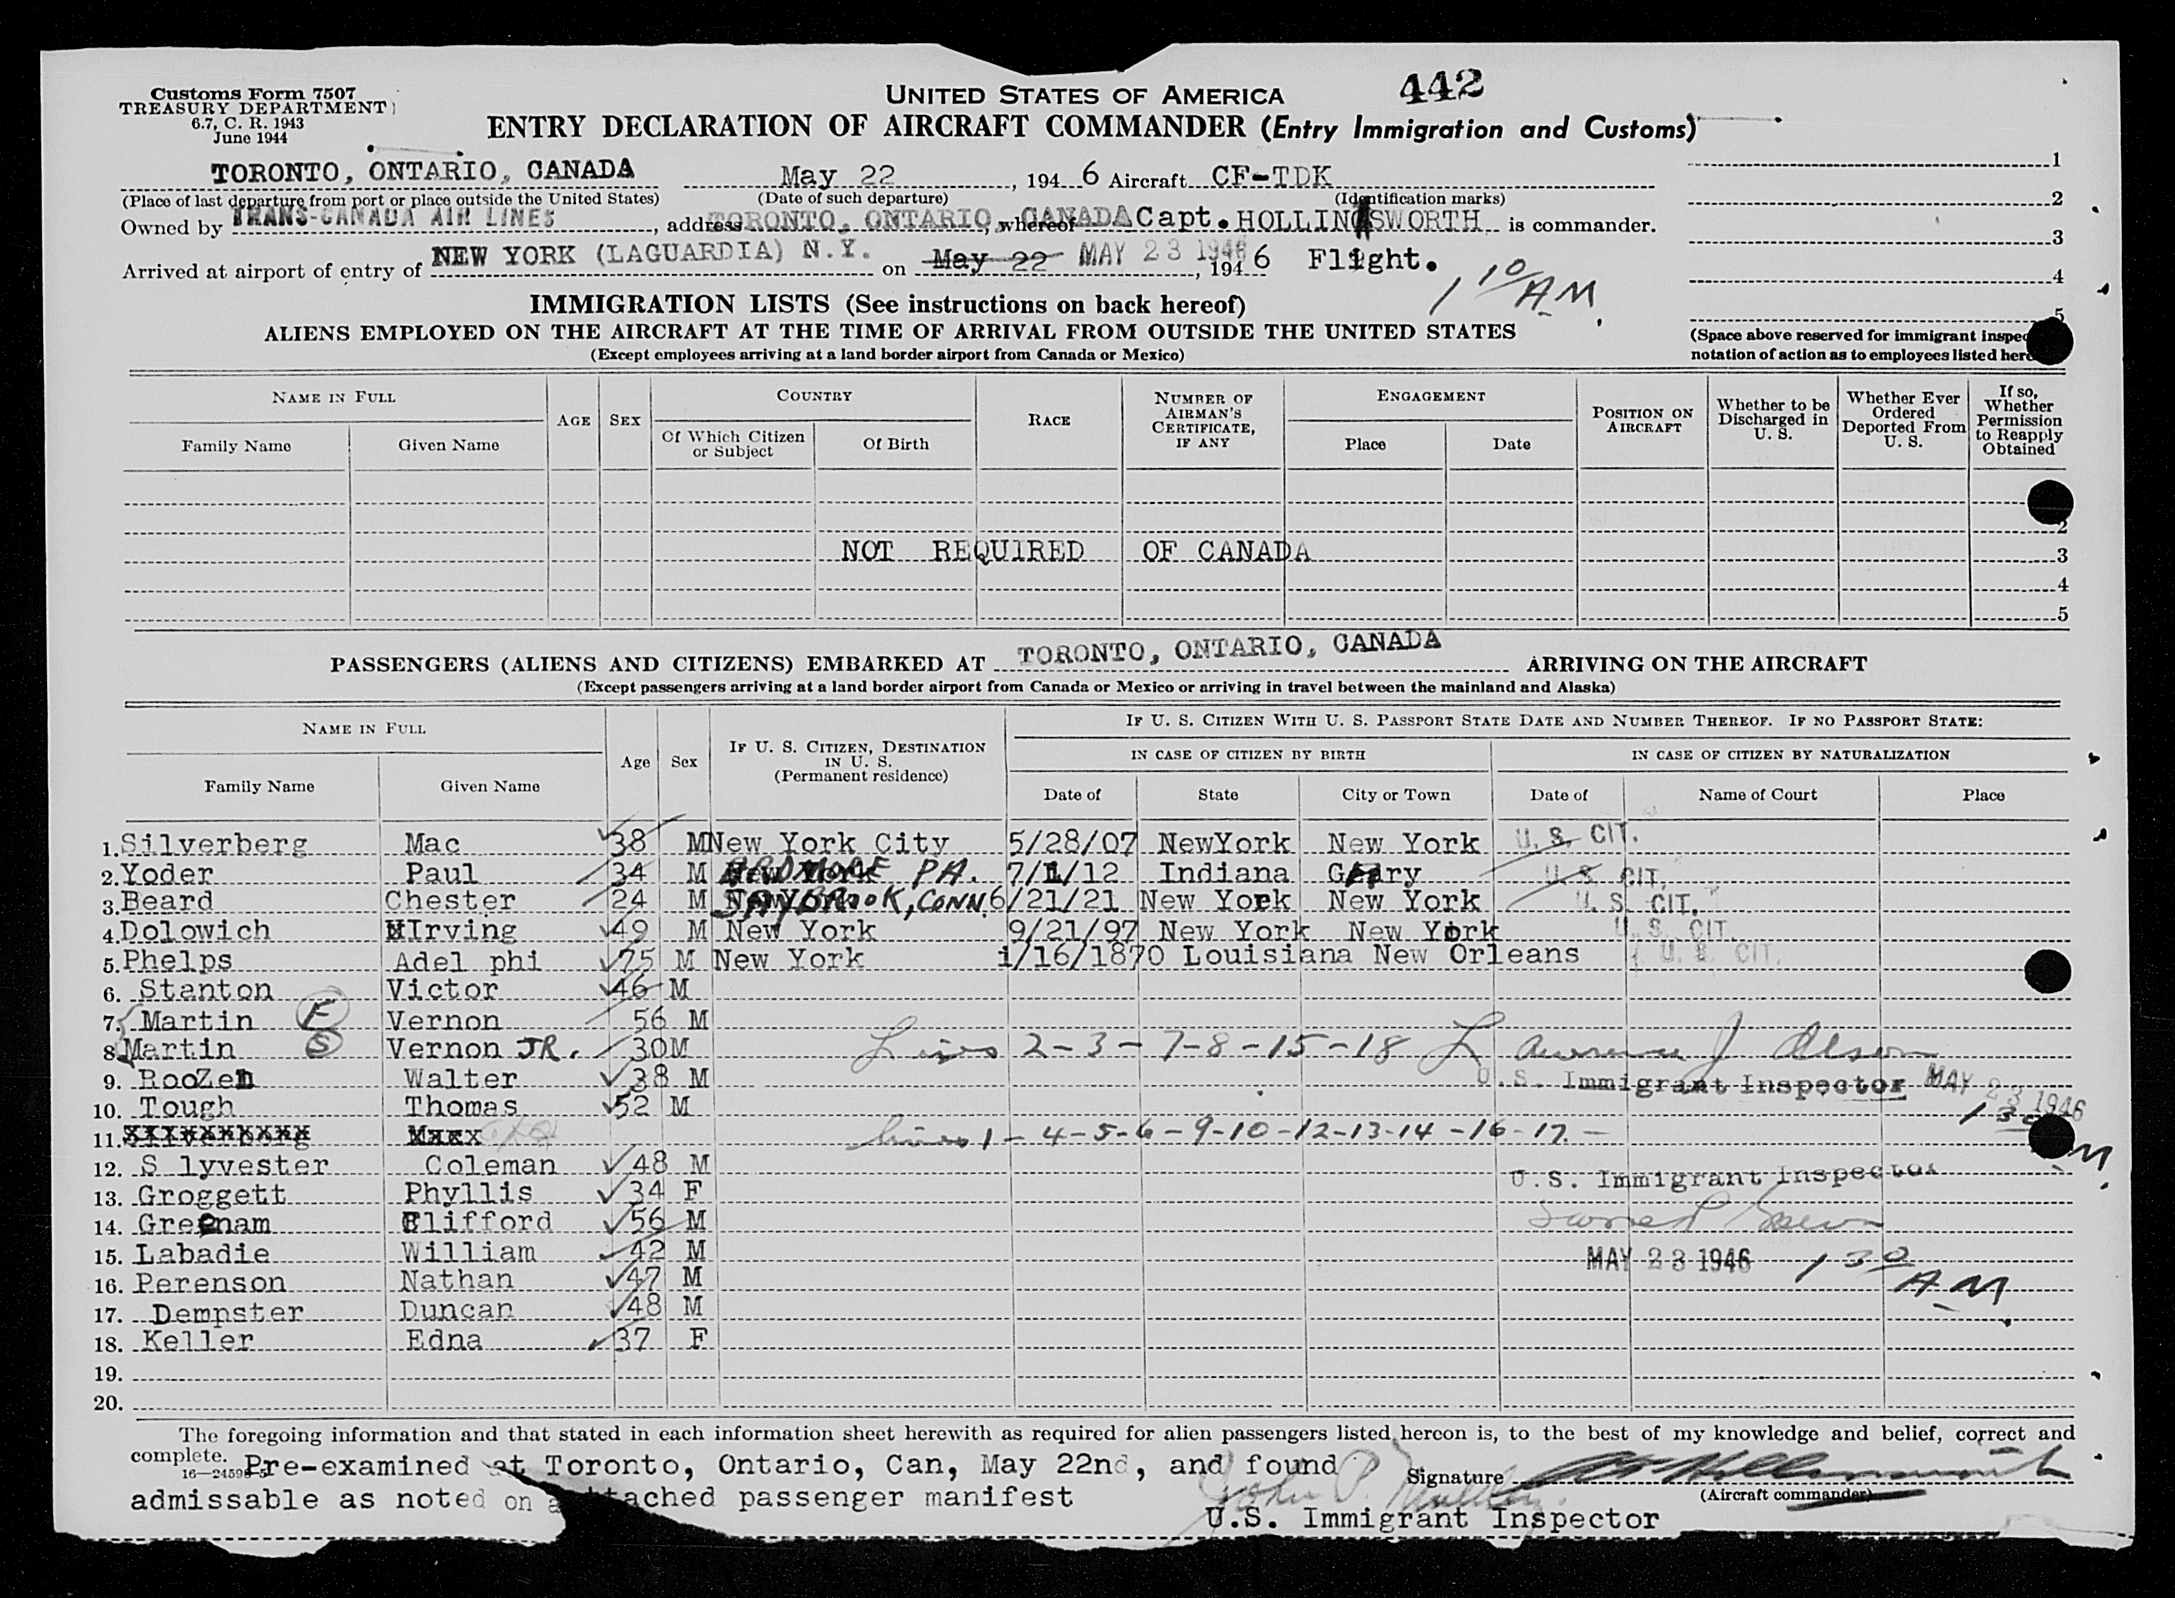 Customs Form 7507
TREASURY DEPARTMENT
6.7, C. R. 1943
June 1944
UNITED STATES OF AMERICA
442
ENTRY DECLARATION OF AIRCRAFT COMMANDER (Entry Immigration and Customs)
TORONTO, ONTARIO, CANADA May 22, 1946 Aircraft CF-TDK
(Place of last departure from port or place outside the United States) (Date of such departure) (Identification marks)
Owned by TRANS-CANADA AIR LINES, address TORONTO, ONTARIO, CANADA whereof Capt. HOLLINGSWORTH is commander.
Arrived at airport of entry of NEW YORK (LAGUARDIA) N.Y. on May 22 MAY 23 1946, 1946 Flight. 1 10 AM
1
2
3
4
5
IMMIGRATION LISTS (See instructions on back hereof)
ALIENS EMPLOYED ON THE AIRCRAFT AT THE TIME OF ARRIVAL FROM OUTSIDE THE UNITED STATES
(Except employees arriving at a land border airport from Canada or Mexico)
(Space above reserved for immigrant inspec
notation of action as to employees listed her
NAME IN FULL
Family Name Given Name
AGE SEX
COUNTRY
Of Which Citizen or Subject Of Birth
RACE
NUMBER OF AIRMAN'S CERTIFICATE, IF ANY
ENGAGEMENT
Place Date
POSITION ON AIRCRAFT
Whether to be Discharged in U. S.
Whether Ever Ordered Deported From U. S.
If so, Whether Permission to Reapply Obtained
2
NOT REQUIRED OF CANADA 3
4
5
PASSENGERS (ALIENS AND CITIZENS) EMBARKED AT TORONTO, ONTARIO, CANADA ARRIVING ON THE AIRCRAFT
(Except passengers arriving at a land border airport from Canada or Mexico or arriving in travel between the mainland and Alaska)
NAME IN FULL
Family Name Given Name
Age Sex
IF U. S. CITIZEN, DESTINATION IN U. S.
(Permanent residence)
IF U. S. CITIZEN WITH U. S. PASSPORT STATE DATE AND NUMBER THEREOF. IF NO PASSPORT STATE:
IN CASE OF CITIZEN BY BIRTH IN CASE OF CITIZEN BY NATURALIZATION
Date of State City or Town Date of Name of Court Place
1. Silverberg Mac 38 M New York City 5/28/07 NewYork New York U. S. CIT.
2. Yoder Paul 34 M ARDMORE PA. 7/1/12 Indiana Gary U. S. CIT.
3. Beard Chester 24 M SAYBROOK, CONN. 6/21/21 New York New York U. S. CIT.
4. Dolowich Irving 49 M New York 9/21/97 New York New York U. S. CIT.
5. Phelps Adel phi 75 M New York 1/16/1870 Louisiana New Orleans U. S. CIT.
6. Stanton Victor 46 M
7. Martin F Vernon 56 M
8. Martin S Vernon JR. 30 M Lines 2-3-7-8-15-18 Lawrence J Olson
9. RooZen Walter 38 M U.S. Immigrant Inspector MAY 23 1946
10. Tough Thomas 52 M
11. Lines 1-4-5-6-9-10-12-13-14-16-17.
12. S lyvester Coleman 48 M
13. Groggett Phyllis 34 F U.S. Immigrant Inspector
14. Greenam Clifford 56 M
15. Labadie William 42 M MAY 23 1946 1 30 AM
16. Perenson Nathan 47 M
17. Dempster Duncan 48 M
18. Keller Edna 37 F
19.
20.
The foregoing information and that stated in each information sheet herewith as required for alien passengers listed hereon is, to the best of my knowledge and belief, correct and
complete.
Pre-examined at Toronto, Ontario, Can, May 22nd, and found
admissable as noted on attached passenger manifest
Signature
(Aircraft commander)
U.S. Immigrant Inspector